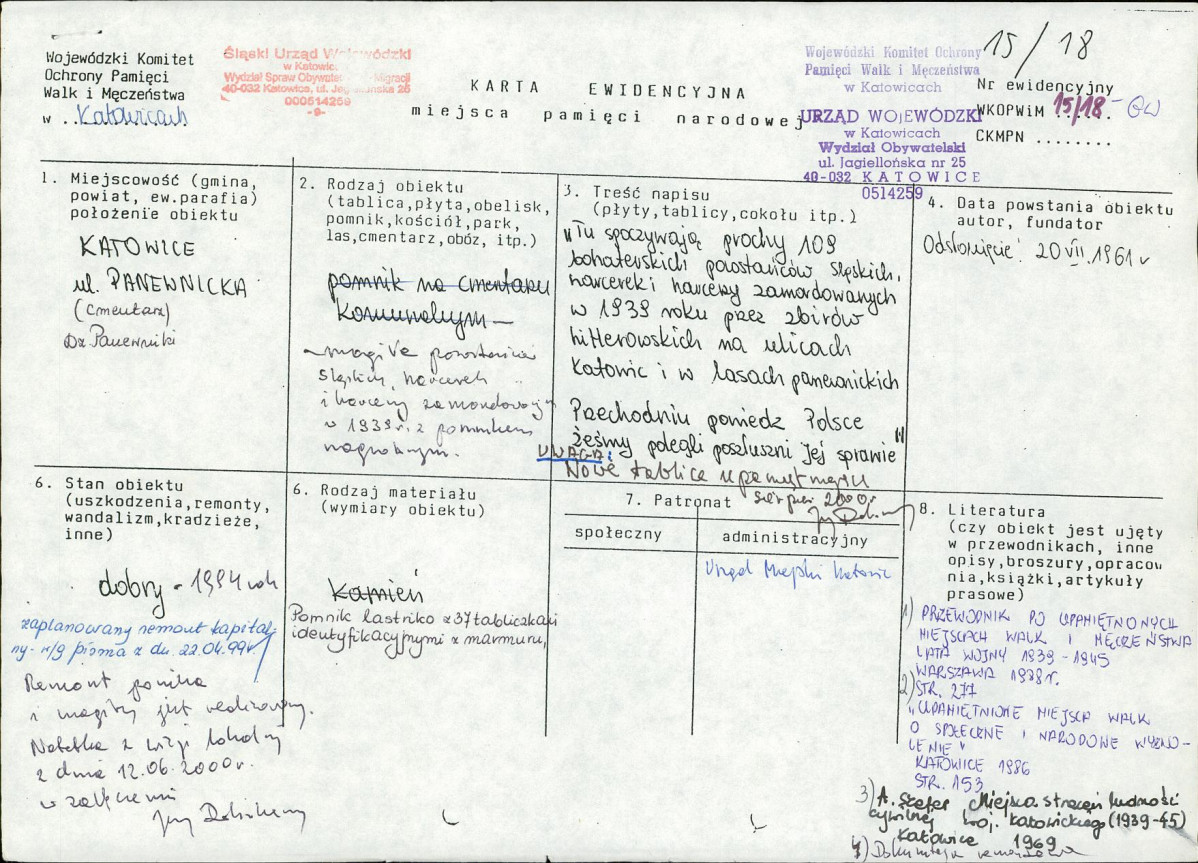 Wojewódzki Komitet
Ochrony Pamięci
Walk i Męczeństwa
w ..Katowicach
Śląski Urząd Wojewódzki
w Katowic
Wydział Spraw Obywatel Migracji
40-032 Katowice, ul. Jagiellońska 25
000514259
-9-
KARTA EWIDENCYJNA
miejsca pamięci narodowej
Wojewódzki Komitet Ochrony
Pamięci Walk i Męczeństwa
w Katowicach
URZĄD WOJEWÓDZKI
w Katowicach
Wydział Obywatelski
ul. Jagiellońska nr 25
40-032 KATOWICE
0514259
15/18
Nr ewidencyjny
WKOPWiM 15/18
CKMPN ........
1. Miejscowość (gmina,
powiat, ew.parafia)
położenie obiektu
KATOWICE
ul. PANEWNICKA
(cmentarz)
Dz. Panewniki
2. Rodzaj obiektu
(tablica,płyta,obelisk,
pomnik,kościół,park,
las,cmentarz,obóz, itp.)
pomnik na cmentarzu
komunalnym
- mogiła powstańców
śląskich, harcerek
i harcerzy zamordowanych
w 1939r. z pomnikiem
nagrobnym.
3. Treść napisu
(płyty,tablicy,cokołu itp.)
"Tu spoczywają prochy 109
bohaterskich powstańców śląskich,
harcerek i harcerzy zamordowanych
w 1939 roku przez zbirów
hitlerowskich na ulicach
Katowic i w lasach panewnickich
Przechodniu powiedz Polsce
żeśmy polegli posłuszni Jej sprawie"
UWAGA:
Nowe tablice
sierpień 2000r
4. Data powstania obiektu
autor, fundator
Odsłonięcie: 20 VII.1961r
6. Stan obiektu
(uszkodzenia,remonty,
wandalizm,kradzieże,
inne)
dobry - 1994 rok
zaplanowany remont kapital-
ny - w/g pisma z dn. 22.04.99r.
Remont pomnika
i mogiły jest realizowany.
Notatka z wizji lokalnej
z dnia 12.06.2000r.
w załączeniu
6. Rodzaj materiału
(wymiary obiektu)
kamień
Pomnik lastriko z 37 tabliczkami
identyfikacyjnymi z marmuru,
7. Patronat
społeczny
administracyjny
Urząd Miejski Katowic
8. Literatura
(czy obiekt jest ujęty
w przewodnikach, inne
opisy,broszury,opracow
nia,książki,artykuły
prasowe)
1) PRZEWODNIK PO UPAMIĘTNIONYCH
MIEJSCACH WALK I MĘCZEŃSTWA
LATA WOJNY 1939-1945
WARSZAWA 1988r.
STR. 277
2) "UPAMIĘTNIONE MIEJSCA WALK
O SPOŁECZNE I NARODOWE WYZWO-
LENIE"
KATOWICE 1986
STR. 153
3) A. Szefer Miejsca straceń ludności
cywilnej woj. katowickiego (1939-45)
Katowice 1969
4) Dokumentacja remontowa